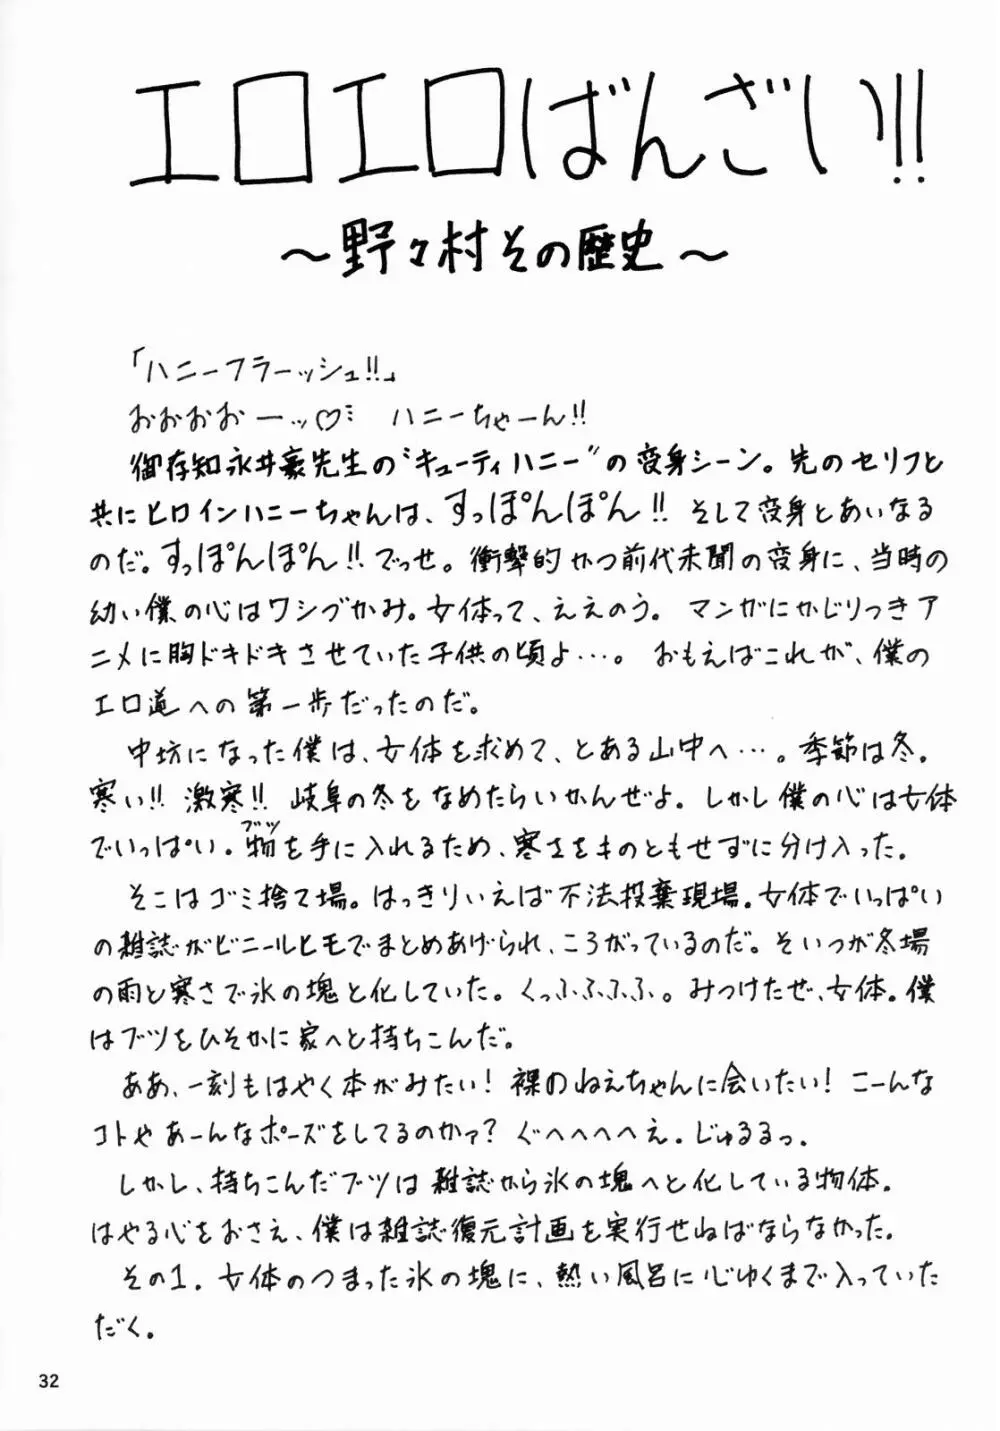 エロエロばんざい!!
〜野々村その歴史〜
「ハニーフラーッシュ!!」
おぉぉおーッ♡ ハニーちゃーん!!
御存知永井豪先生の“キューティハニー”の変身シーン。先のセリフと
共にヒロインハニーちゃんは、すっぽんぽん!! そして変身とあいなる
のだ。すっぽんぽん!!でっせ。衝撃的かつ前代未聞の変身に、当時の
幼い僕の心はワシづかみ。女体って、ええのう。 マンガにかじりつきア
ニメに胸ドキドキさせていた子供の頃よ…。 おもえばこれが、僕の
エロ道への第一歩だったのだ。
中坊になった僕は、女体を求めて、とある山中へ…。季節は冬。
寒い!! 激寒!! 岐阜の冬をなめたらいかんぜよ。しかし僕の心は女体
ブツ
でいっぱい。物を手に入れるため、寒さをものともせずに分け入った。
そこはゴミ捨て場。はっきりいえば不法投棄現場。女体でいっぱい
の雑誌がビニールヒモでまとめあげられ、ころがっているのだ。そいつが冬場
の雨と寒さで氷の塊と化していた。くっふふふふ。みつけたぜ、女体。僕
はブツをひそかに家へと持ちこんだ。
ああ、一刻もはやく本がみたい! 裸のねえちゃんに会いたい! こーんな
コトやあーんなポーズをしてるのかァ? ぐへへへへえ。じゅるるっ。
しかし、持ちこんだブツは雑誌から氷の塊へと化している物体。
はやる心をおさえ、僕は雑誌復元計画を実行せねばならなかった。
その1. 女体のつまった氷の塊に、熱い風呂に心ゆくまで入っていた
だく。
32